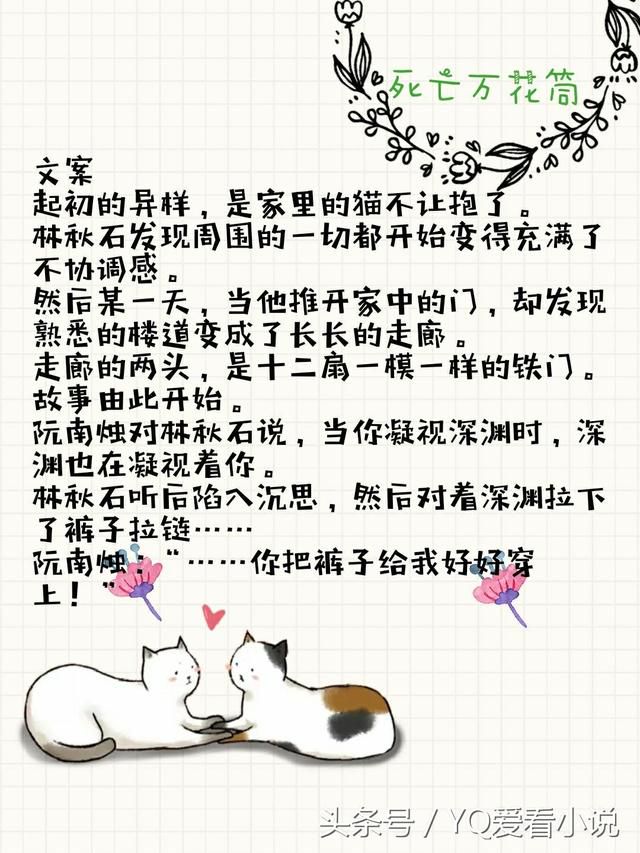 死亡万花筒
文案
起初的异样，是家里的猫不让抱了。
林秋石发现周围的一切都开始变得充满了
不协调感。
然后某一天，当他推开家中的门，却发现
熟悉的楼道变成了长长的走廊。
走廊的两头，是十二扇一模一样的铁门。
故事由此开始。
阮南烛对林秋石说，当你凝视深渊时，深
渊也在凝视着你。
林秋石听后陷入沉思，然后对着深渊拉下
了裤子拉链……
阮南烛：“……你把裤子给我好好穿
上！”
头条号 / YQ爱看小说